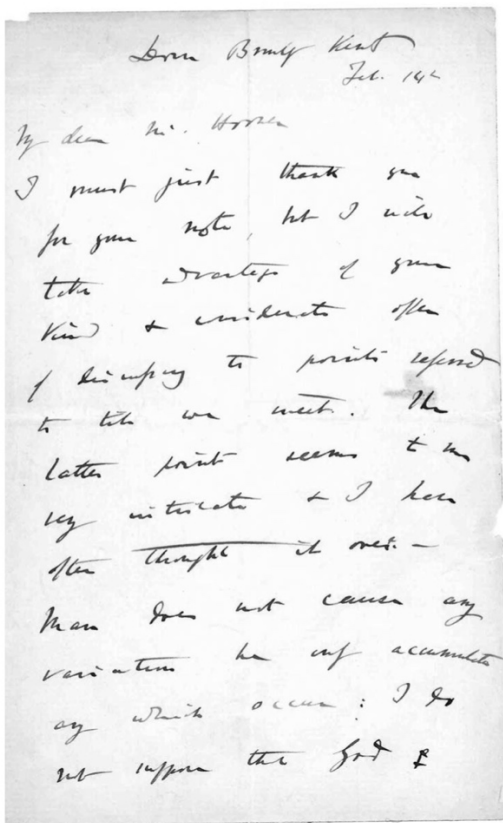 Down Bromley Kent
Feb. 14th
My dear Mr. Hooker
I must just thank you
for your note, but I will
take advantage of your
kind & considerate offer
of discussing the points referred
to till we meet. The
latter point seems to me
very intricate & I have
often thought it over. —
Man does not cause any
variation he only accumulates
any which occur: I do
not suppose that God